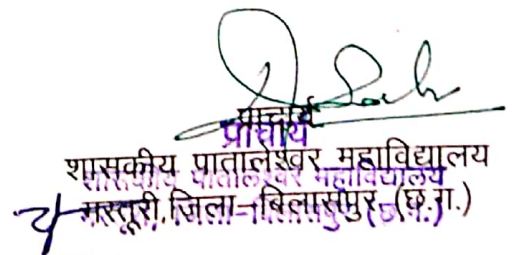 प्राचार्य
प्राचार्य
शासकीय पातालेश्वर महाविद्यालय
शासकीय पातालेश्वर महाविद्यालय
मस्तूरी, जिला-बिलासपुर (छ.ग.)